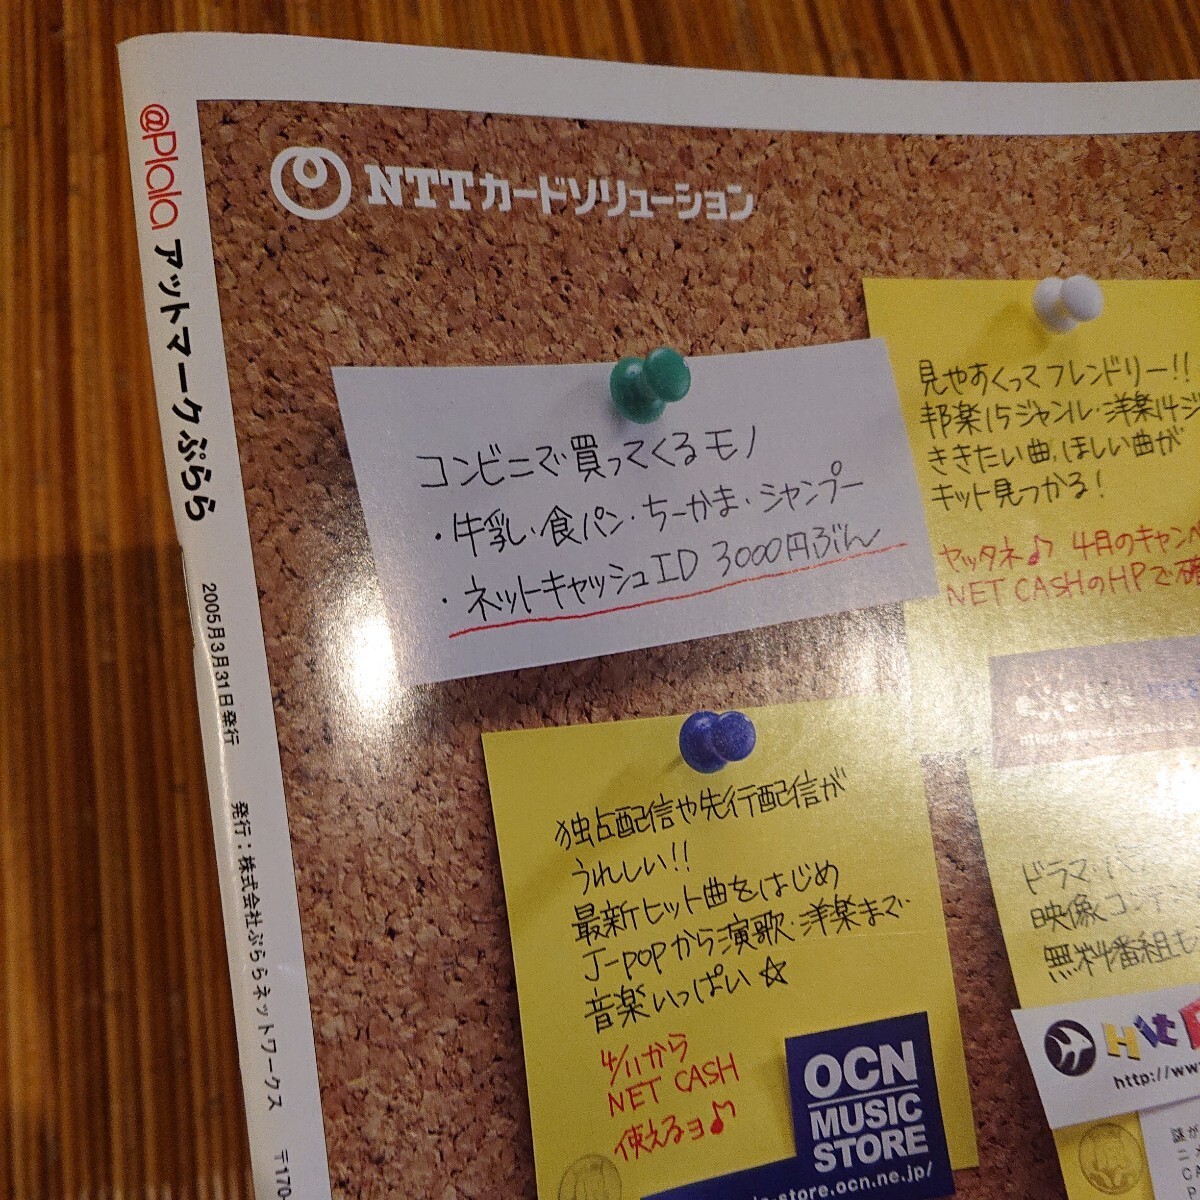 @Plala アットマークぷらら
2005年3月31日発行
発行：株式会社ぷららネットワークス
〒170-
NTTカードソリューション
コンビニで買ってくるモノ
・牛乳・食パン・ちーかま・シャンプー
・ネットキャッシュID 3000円ぶん
見やすくってフレンドリー!!
邦楽15ジャンル・洋楽14ジ
ききたい曲、ほしい曲が
キット見つかる!
ヤッタネ♪ 4月のキャンペ
NET CASHのHPで確
excite
独占配信や先行配信が
うれしい!!
最新ヒット曲をはじめ
J-popから演歌・洋楽まで
音楽いっぱい☆
4/11から
NET CASH
使えるヨ♪
OCN
MUSIC
STORE
-store.ocn.ne.jp/
ドラマ・
映像コンテン
無料番組も
Hit
http://ww